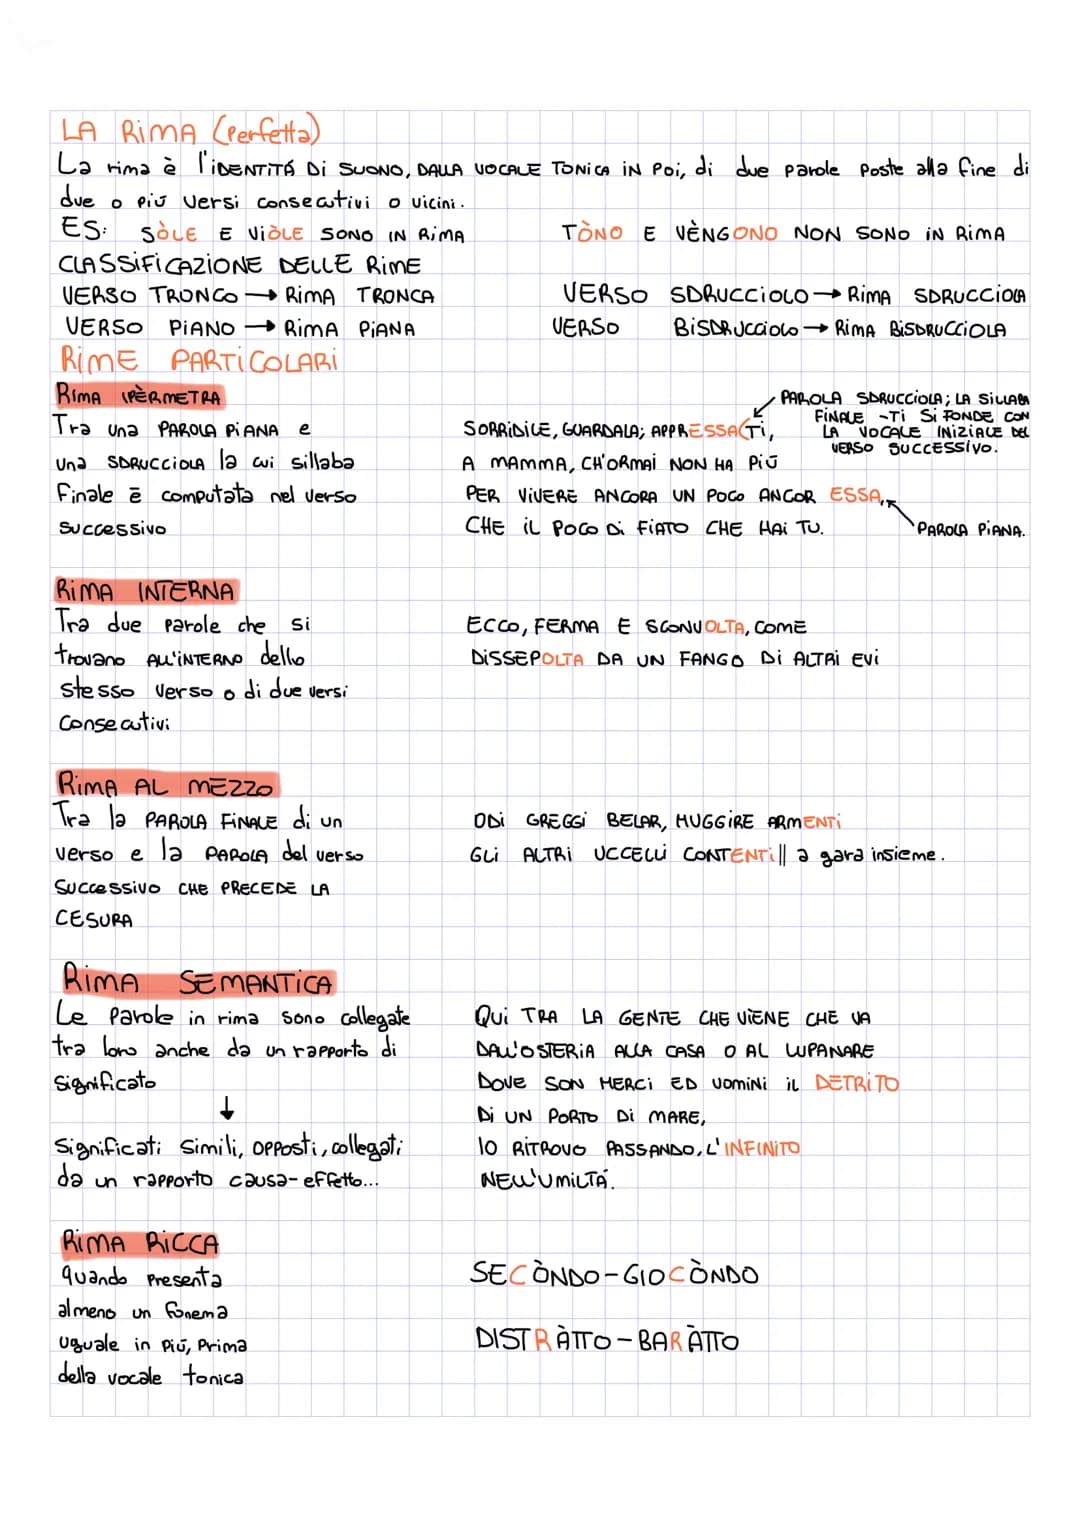 LA RIMA (Perfetta)
La rima è l'IDENTITÁ DI SUONO, DALLA VOCALE TONICA IN POI, di due parole poste alla fine di
due o piú versi consecutivi o vicini.
ES: SÒLE E VIÒLE SONO IN RIMA TÒNO E VÈNGONO NON SONO IN RIMA
CLASSIFICAZIONE DELLE RIME
VERSO TRONCO → RIMA TRONCA VERSO SDRUCCIOLO → RIMA SDRUCCIOLA
VERSO PIANO → RIMA PIANA VERSO BISDRUCCIOLO → RIMA BISDRUCCIOLA
RIME PARTICOLARI
RIMA IPÈRMETRA
Tra una PAROLA PIANA e
una SDRUCCIOLA la cui sillaba
finale ē computata nel verso
successivo
SORRIDILE, GUARDALA; APPRESSA(TI,
A MAMMA, CH'ORMAI NON HA PIÚ
PER VIVERE ANCORA UN POCO ANCOR ESSA,
CHE IL POCO DI FIATO CHE HAI TU.
PAROLA SDRUCCIOLA; LA SILLABA
FINALE -TI SI FONDE CON
LA VOCALE INIZIALE DEL
VERSO SUCCESSIVO.
PAROLA PIANA.
RIMA INTERNA
Tra due parole che si
trovano ALL'INTERNO dello
stesso verso o di due versi
consecutivi
ECCO, FERMA E SCONVOLTA, COME
DISSEPOLTA DA UN FANGO DI ALTRI EVI
RIMA AL MEZZO
Tra la PAROLA FINALE di un
verso e la PAROLA del verso
successivo CHE PRECEDE LA
CESURA
ODI GREGGI BELAR, MUGGIRE ARMENTI
GLI ALTRI UCCELLI CONTENTI || a gara insieme.
RIMA SEMANTICA
Le parole in rima sono collegate
tra loro anche da un rapporto di
significato
↓
Significati simili, opposti, collegati
da un rapporto causa-effetto...
QUI TRA LA GENTE CHE VIENE CHE VA
DALL'OSTERIA ALLA CASA O AL LUPANARE
DOVE SON MERCI ED UOMINI IL DETRITO
DI UN PORTO DI MARE,
IO RITROVO PASSANDO, L'INFINITO
NELL'UMILTÁ.
RIMA RICCA
quando presenta
almeno un fonema
uguale in piú, prima
della vocale tonica
SECÒNDO-GIOCÒNDO
DISTRÀTTO-BARÀTTO